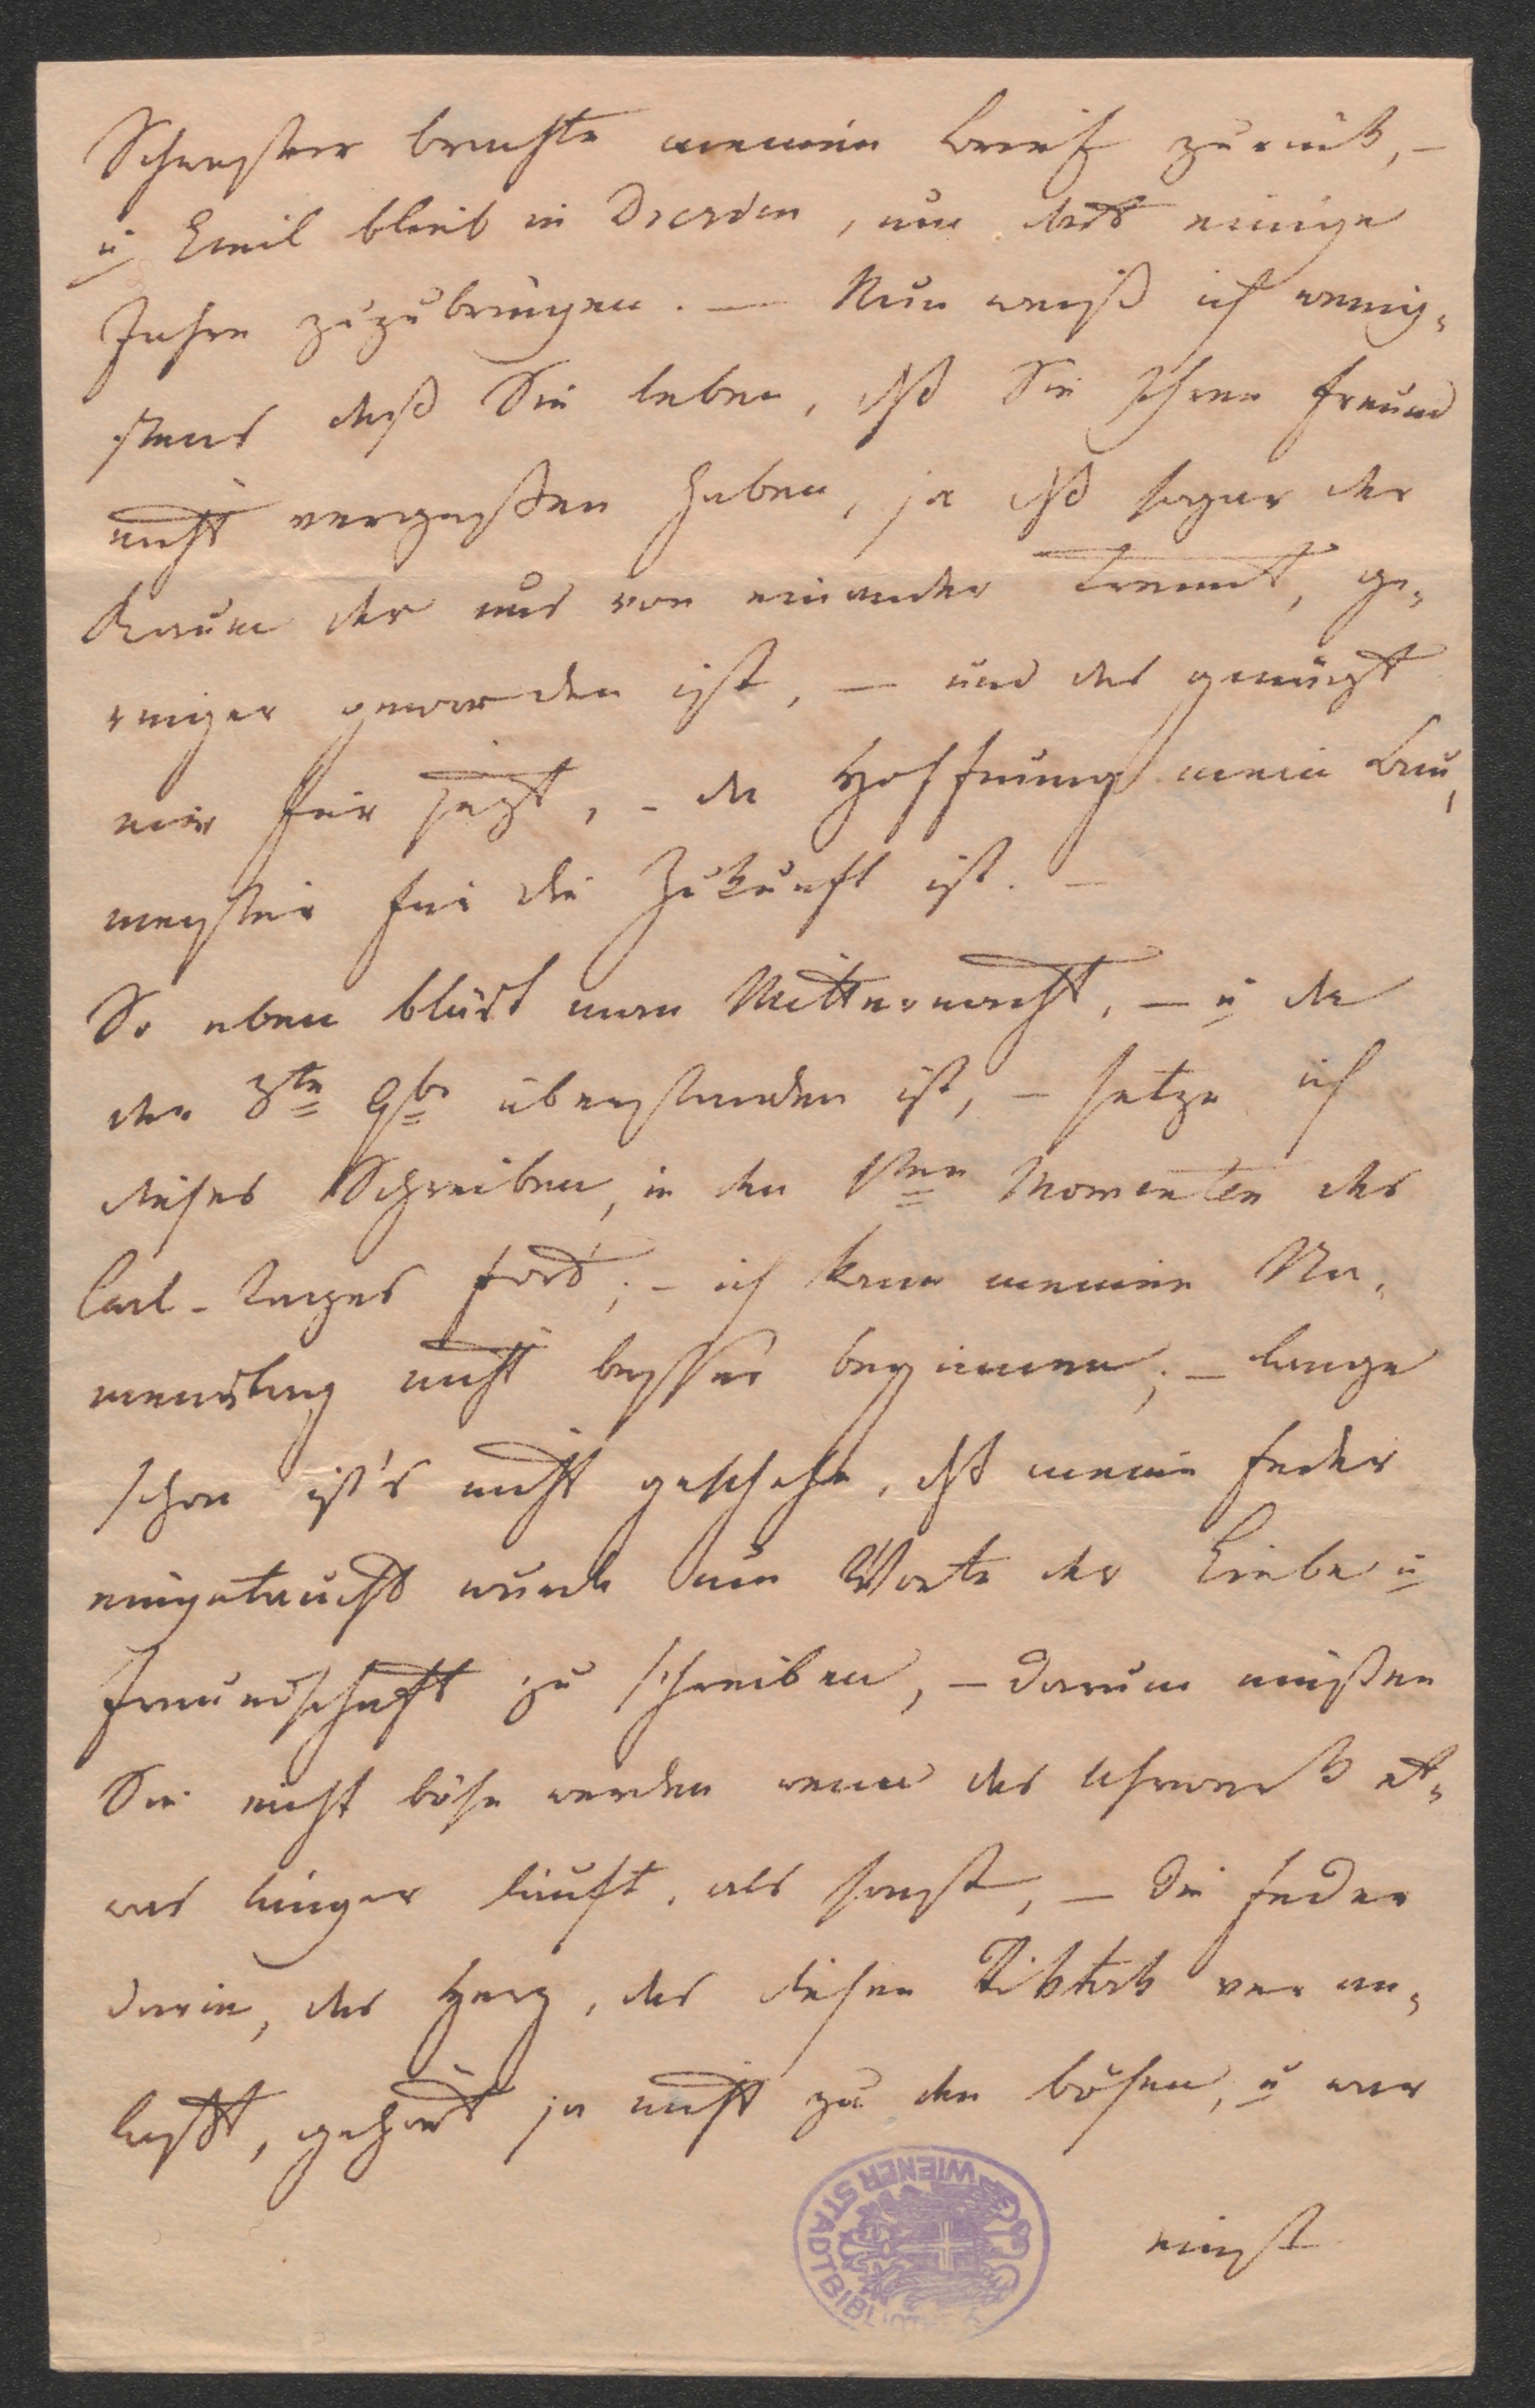 Schwester brachte meinen Brief zurück, –
u Emil blieb in Dresden, um dort einige
Jahre zuzubringen. — Nun weiß ich wenig=
stens daß Sie leben, dß Sie Ihren Freund
nicht vergeßen haben, ja dß sogar der
Raum der uns von einander trennt, ge=
ringer geworden ist, — und das genügt
mir für jezt, – da Hoffnung mein Bau,
meister für die Zukunft ist. –
So eben bläst man Mitternacht, – u da
der 3te 9br überstanden ist, – setze ich
dieses Schreiben, in den 1sten Momenten des
Carl-Tages fort; – ich kann meinen Na=
menstag nicht besser beginnen; – lange
schon ist's nicht geschehn, dß meine Feder
eingetaucht wurde um Worte der Liebe u
Freundschaft zu schreiben, – darum müßen
Sie nicht böse werden wenn das Uhrwerk et=
was länger läuft, als sonst, — die Feder
darin, das Herz, das diesen Tiktak veran=
laßt, gehört ja nicht zu den bösen, u wer
einst
WIENER STADTBIBLIOTHEK